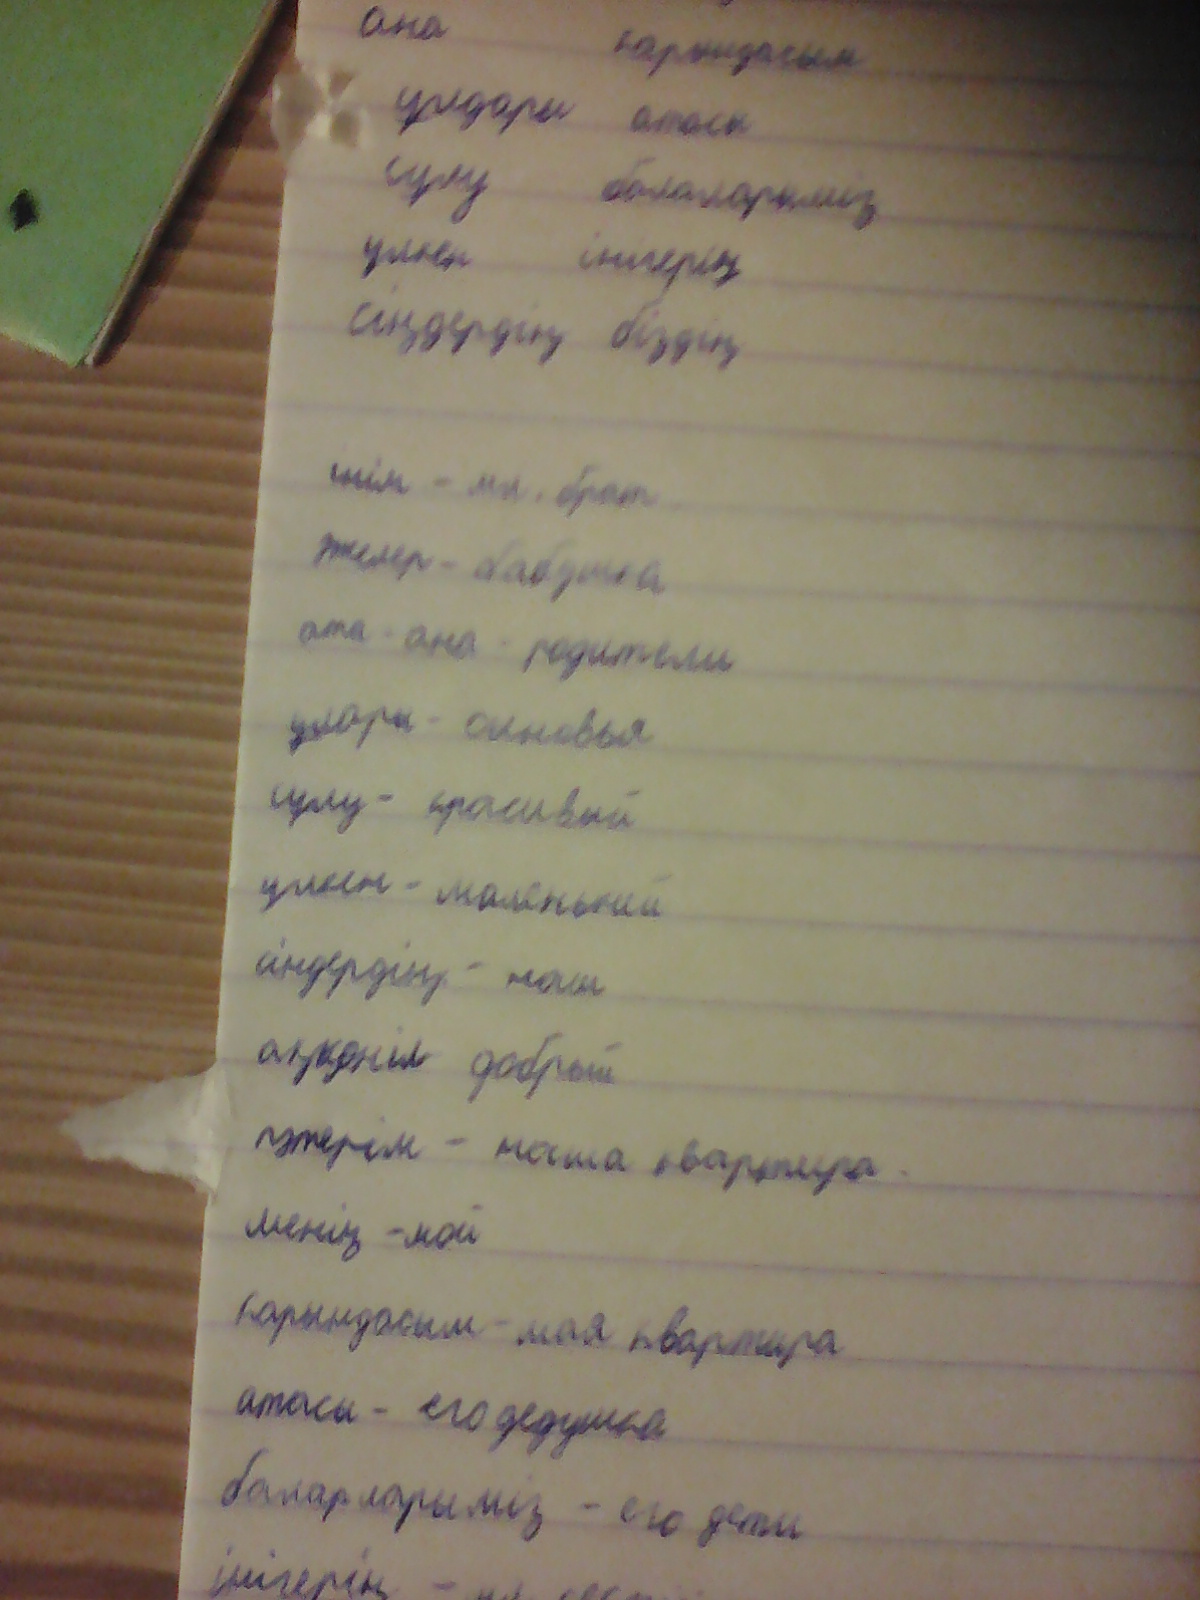 ана карындасым
улдары атасы
сулу балаларымыз
улкен інілерің
сіңдердің біздің
інім - мл. брат
әжелер - бабушка
ата - ана - родители
улары - сыновья
сулу - красивый
улкен - маленький
сіндердің - наш
добрый
пәтерім - наша квартира.
менің - мой
карындасым - моя квартира
атасы - его дедушка
баларларымыз - его дети
інілерің - мл.